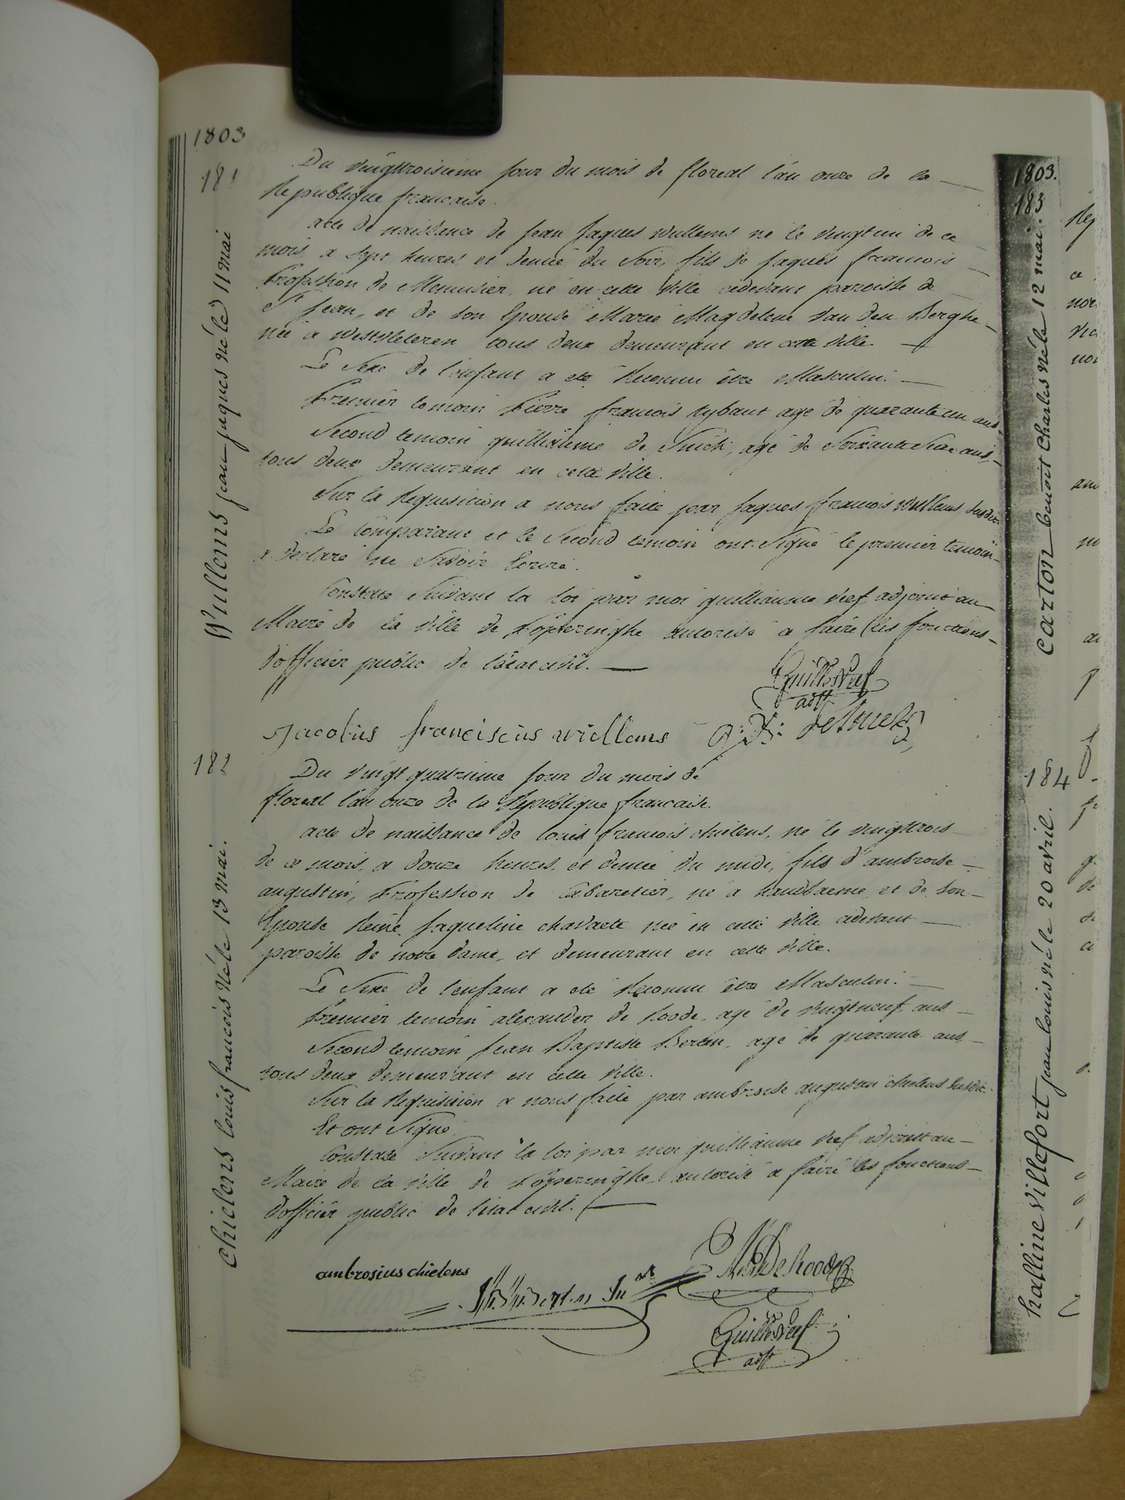 1803
181
Wullems jean jaques né le 11 mai
Du vingttroisieme jour du mois de floreal l'an onze de la
Republique francaise.
acte de naissance de jean jaques wullems né le vingt un de ce
mois a sept heures et demie du soir, fils de jaques francois
Profession de Menuisier, né en cette ville cidevant paroisse de
St jean, et de son Epouse Marie Magdelene Van den Berghe
née a westvleteren tous deux demeurant en cette ville.
Le Sexe de l'enfant a été Reconnu être Masculin.
Premier temoin Pierre francois agé de quarante un ans,
Second temoin guilliaume de agé de Soixante ans
tous deux demeurant en cette ville.
Sur la Requisition a nous faite par jaques francois wullems susdit
Le Comparant et le Second temoin ont Signé le premier temoin
a declaré ne Savoir Ecrire.
Constaté Suivant la loi par moi guilliaume Nef adjoint au
Maire de la ville de Poperinghe autorisé a faire les fonctions
d'officier public de l'état civil.
Guill: Nef
adjt
Jacobus franciscus wullems
182
chielens louis francois né le 13 mai.
Du vingt quatrieme jour du mois de
floreal l'an onze de la Republique francaise.
acte de naissance de louis francois chielens, né le vingttrois
de ce mois, a douze heures et demie du midi, fils d'ambroise
augustin, Profession de Cabaretier, né a et de Son
Epouse Reine Jaqueline née en cette ville cidevant
paroisse de notre dame, et demeurant en cette ville.
Le Sexe de l'enfant a été Reconnu être Masculin.
Premier temoin alexander de Roode, agé de vingtneuf ans
Second temoin Jean Baptiste Berten, agé de quarante ans
tous deux demeurant en cette ville.
Sur la Requisition a nous faite par ambroise augustin chielens susdit.
Et ont Signé
Constaté Suivant la loi par moi guilliaume Nef adjoint au
Maire de la ville de Poperinghe autorisé a faire les fonctions
d'officier public de l'état civil.
ambrosius chielens
De Roode
Guill: Nef
adjt
1803.
183
carton benoit charles né le 12 mai.
184
halline villefort jean louis né le 20 avril.